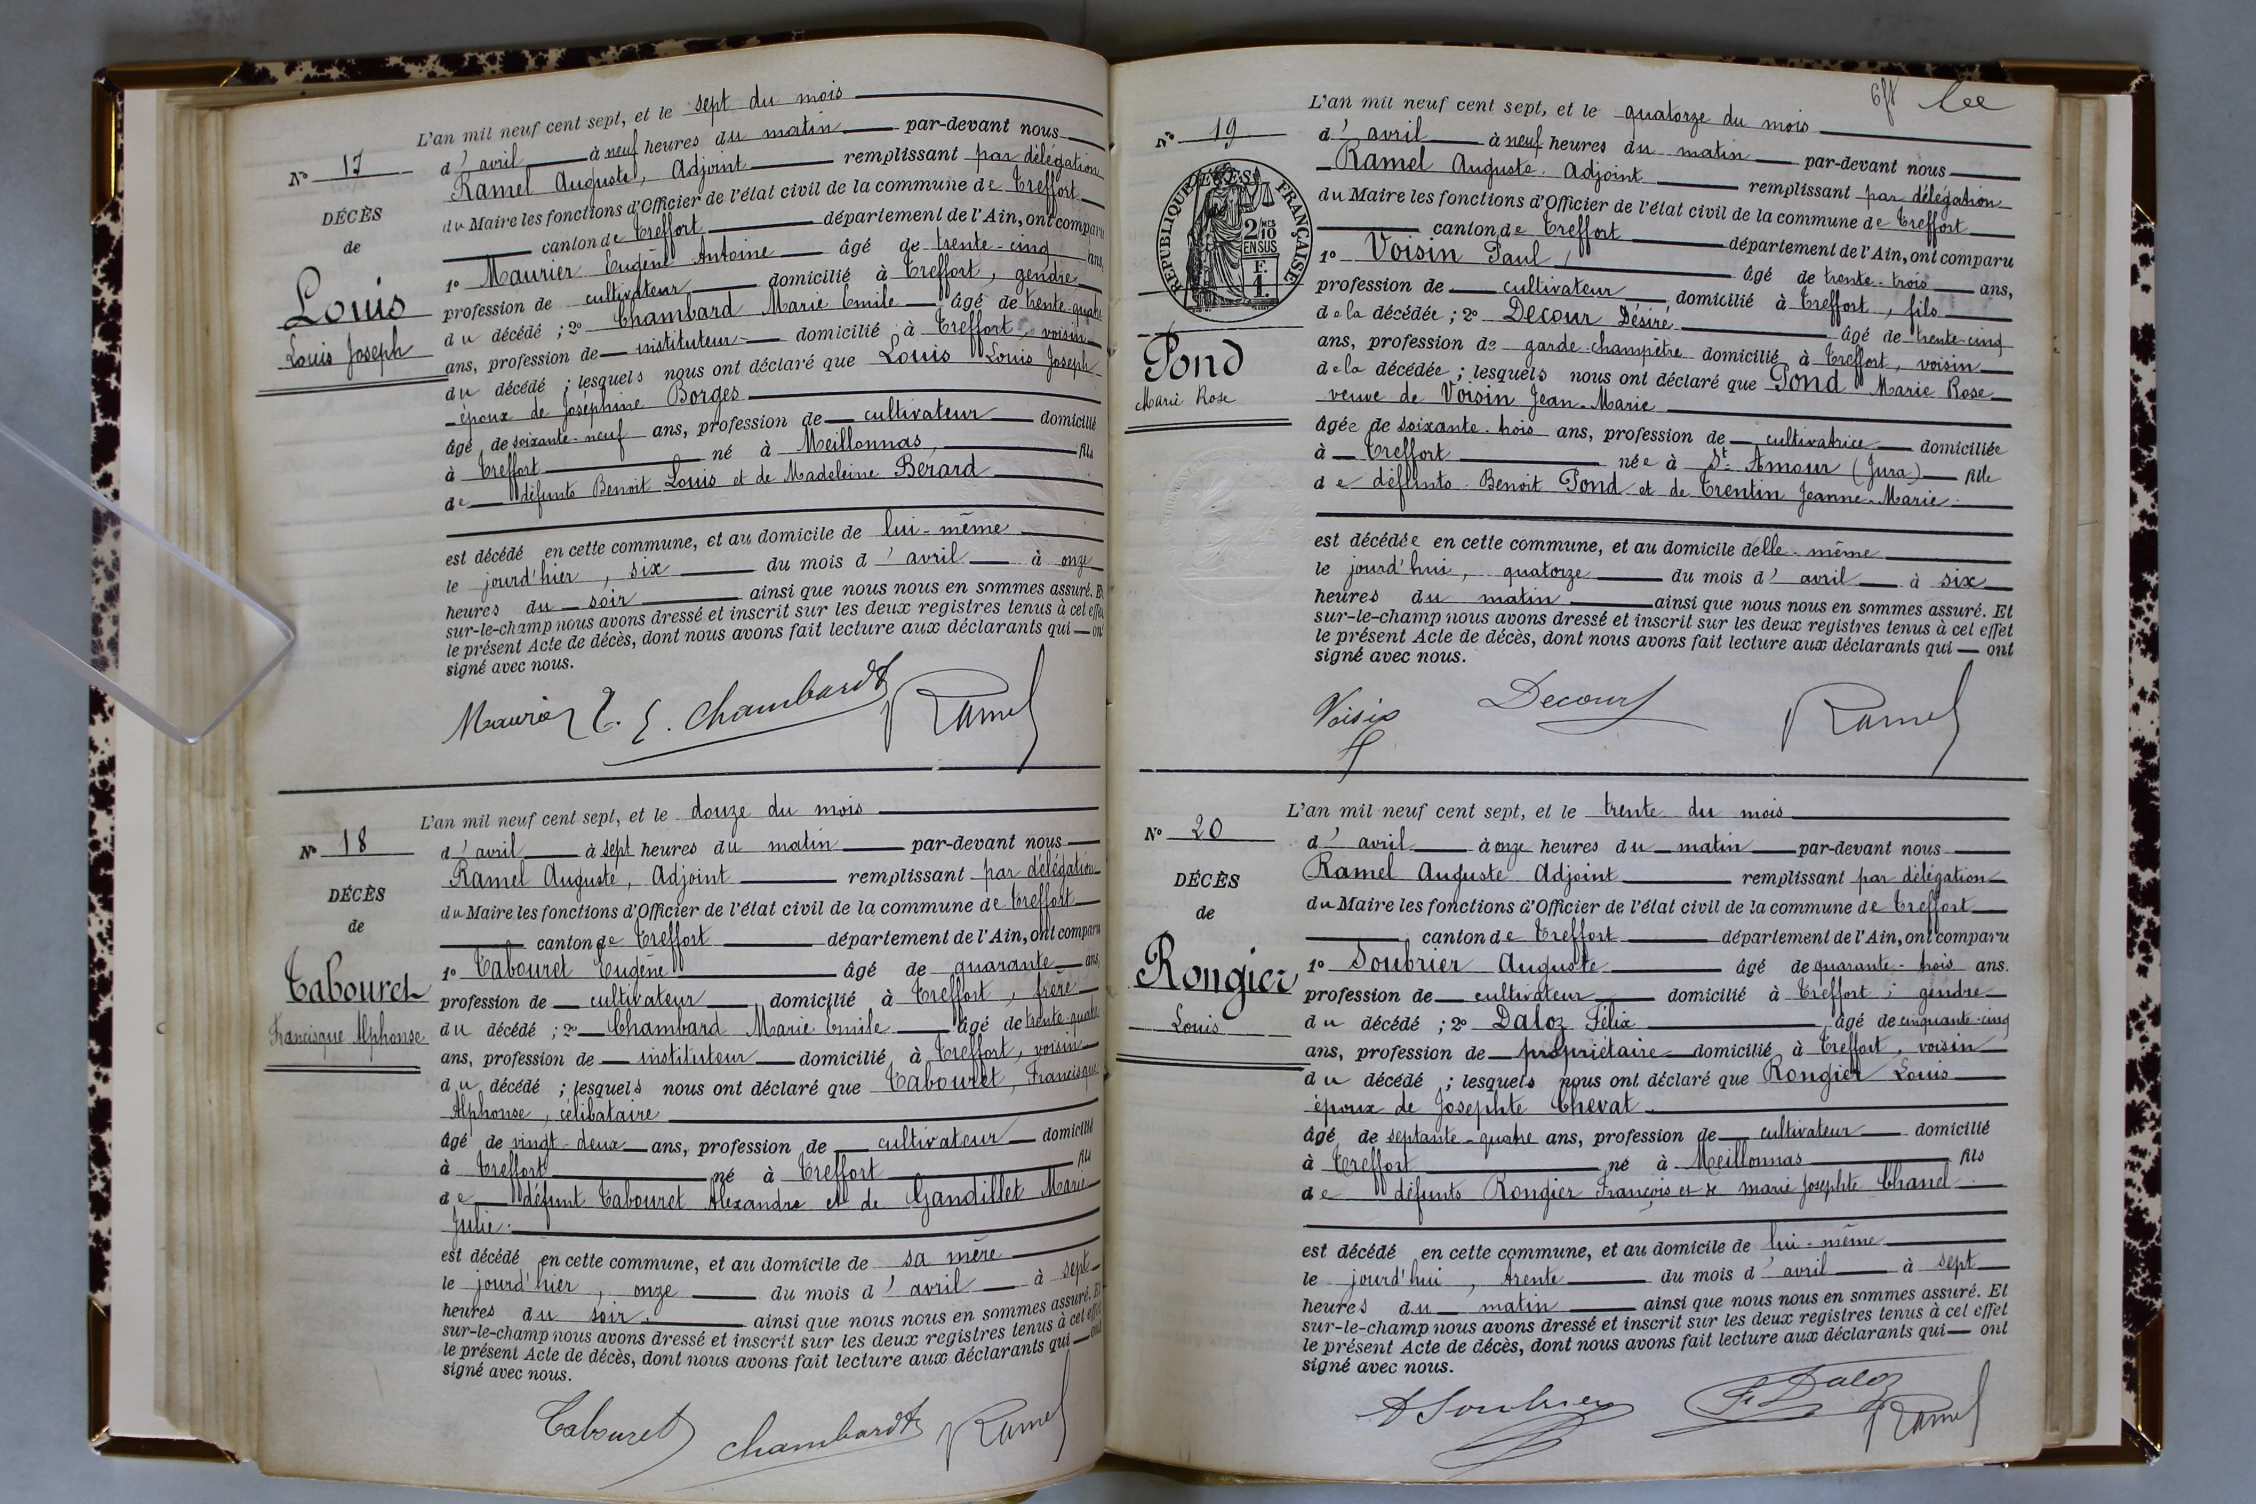 L'an mil neuf cent sept, et le sept du mois
N° 17
d'avril à neuf heures du matin par-devant nous
Ramel Auguste, Adjoint remplissant par délégation
DÉCÈS
du Maire les fonctions d'Officier de l'état civil de la commune de Treffort
de
canton de Treffort département de l'Ain, ont comparu
Louis
1° Maurier Eugène Antoine âgé de trente-cinq ans,
profession de cultivateur domicilié à Treffort, gendre
Louis Joseph
du décédé ; 2° Chambard Marie Emile âgé de trente-quatre
ans, profession de instituteur domicilié à Treffort, voisin
du décédé ; lesquels nous ont déclaré que Louis Louis Joseph
époux de Joséphine Borges
âgé de soixante-neuf ans, profession de cultivateur domicilié
à Treffort né à Meillonnas, fils
de défunts Benoit Louis et de Madeleine Bérard
est décédé en cette commune, et au domicile de lui-même
le jourd'hier, six du mois d'avril à onze
heures du soir ainsi que nous nous en sommes assuré. Et
sur-le-champ nous avons dressé et inscrit sur les deux registres tenus à cet effet
le présent Acte de décès, dont nous avons fait lecture aux déclarants qui ont
signé avec nous.
Maurier E. Chambard Ramel
L'an mil neuf cent sept, et le douze du mois
N° 18
d'avril à sept heures du matin par-devant nous
Ramel Auguste, Adjoint remplissant par délégation
DÉCÈS
du Maire les fonctions d'Officier de l'état civil de la commune de Treffort
de
canton de Treffort département de l'Ain, ont comparu
Tabouret
1° Tabouret Eugène âgé de quarante ans,
profession de cultivateur domicilié à Treffort, frère
Francisque Alphonse
du décédé ; 2° Chambard Marie Emile âgé de trente-quatre
ans, profession de instituteur domicilié à Treffort, voisin
du décédé ; lesquels nous ont déclaré que Tabouret, Francisque
Alphonse, célibataire
âgé de vingt-deux ans, profession de cultivateur domicilié
à Treffort né à Treffort fils
de défunt Tabouret Alexandre et de Gandillet Marie
Julie.
est décédé en cette commune, et au domicile de sa mère
le jourd'hier, onze du mois d'avril à sept
heures du soir. ainsi que nous nous en sommes assuré. Et
sur-le-champ nous avons dressé et inscrit sur les deux registres tenus à cet effet
le présent Acte de décès, dont nous avons fait lecture aux déclarants qui ont
signé avec nous.
Tabouret Chambard Ramel
L'an mil neuf cent sept, et le quatorze du mois
N° 19
d'avril à neuf heures du matin par-devant nous
Ramel Auguste. Adjoint remplissant par délégation
RÉPUBLIQUE FRANÇAISE
2/10 EN SUS
F. 1.
du Maire les fonctions d'Officier de l'état civil de la commune de Treffort
canton de Treffort département de l'Ain, ont comparu
1° Voisin Paul, âgé de trente-trois ans,
profession de cultivateur domicilié à Treffort, fils
de la décédée ; 2° Decour Désiré âgé de trente-cinq
Pond
ans, profession de garde-champêtre domicilié à Treffort, voisin
Marie Rose
de la décédée ; lesquels nous ont déclaré que Pond Marie Rose
veuve de Voisin Jean-Marie
âgée de soixante-trois ans, profession de cultivatrice domiciliée
à Treffort née à St Amour (Jura) fille
de défunts Benoit Pond et de Trentin Jeanne-Marie.
est décédée en cette commune, et au domicile d'elle-même
le jourd'hui, quatorze du mois d'avril à six
heures du matin ainsi que nous nous en sommes assuré. Et
sur-le-champ nous avons dressé et inscrit sur les deux registres tenus à cet effet
le présent Acte de décès, dont nous avons fait lecture aux déclarants qui ont
signé avec nous.
Voisin Decour Ramel
L'an mil neuf cent sept, et le trente du mois
N° 20
d'avril à onze heures du matin par-devant nous
Ramel Auguste Adjoint remplissant par délégation
DÉCÈS
du Maire les fonctions d'Officier de l'état civil de la commune de Treffort
de
canton de Treffort département de l'Ain, ont comparu
Rongier
1° Soubrier Auguste âgé de quarante-trois ans.
profession de cultivateur domicilié à Treffort ; gendre
Louis
du décédé ; 2° Daloz Félix âgé de cinquante-cinq
ans, profession de propriétaire domicilié à Treffort, voisin
du décédé ; lesquels nous ont déclaré que Rongier Louis
époux de Josephte Chevat.
âgé de septante-quatre ans, profession de cultivateur domicilié
à Treffort né à Meillonnas fils
de défunts Rongier François et de marie Josephte Chanel.
est décédé en cette commune, et au domicile de lui-même
le jourd'hui, trente du mois d'avril à sept
heures du matin ainsi que nous nous en sommes assuré. Et
sur-le-champ nous avons dressé et inscrit sur les deux registres tenus à cet effet
le présent Acte de décès, dont nous avons fait lecture aux déclarants qui ont
signé avec nous.
A Soubrier F. Daloz Ramel